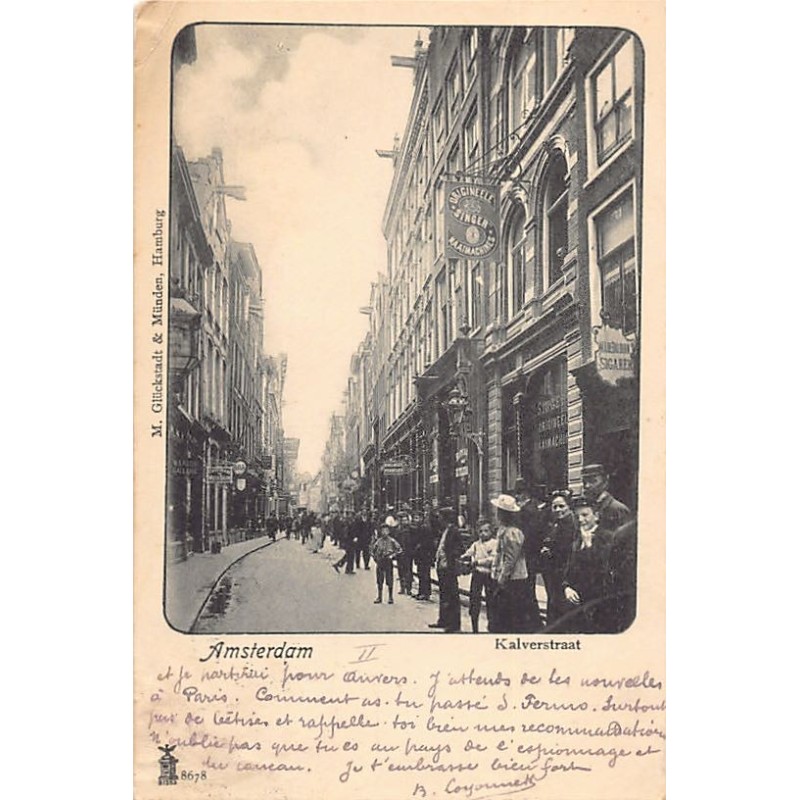 ORIGINEELE
SINGER
NAAIMACHINES
SIGAREN
M. Glückstadt & Münden, Hamburg
Amsterdam
II
Kalverstraat
et je partirai pour Anvers. J'attends de tes nouvelles
à Paris. Comment as-tu passé S. Fermo. Surtout
pas de bêtises et rappelle-toi bien mes recommandations
N'oublie pas que tu es au pays de l'espionnage et
du cancan. Je t'embrasse bien fort
B.
8678